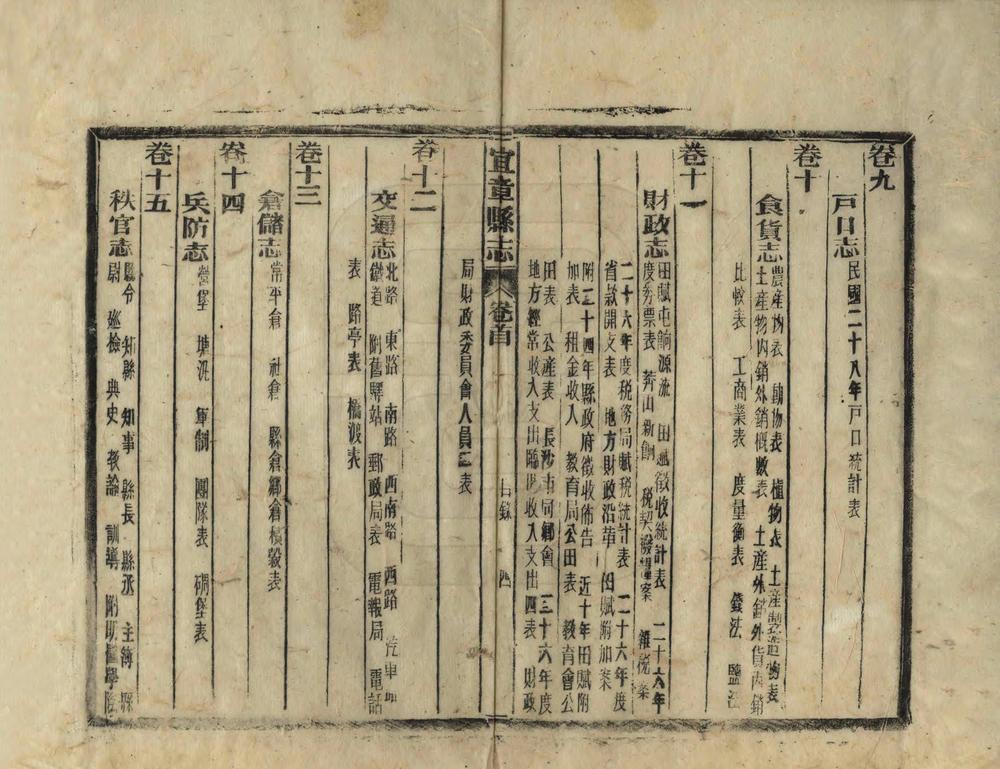 卷九
戸口志 民國二十八年戸口統計表
卷十
食貨志 農產物表 動物表 植物表 土產製造物表
土產物內銷外銷概數表 土產外銷外貨內銷
比較表 工商業表 度量衡表 錢法 鹽法
卷十一
財政志 田賦屯餉源流 田賦徵收統計表 二十六年
度券票表 莽山新餉 税契 雜稅案
二十六年度税務局賦税統計表 二十六年度
省款開支表 地方財政沿革 田賦附加案
附二十四年縣政府徵收佈告 近十年田賦附
加表 租金收入 教育局公田表 教育會公
田表 公產表 長沙市同鄉會 二十六年度
地方經常收入支出臨時收入支出四表 財政
宜章縣志 卷首 目錄 四
局財政委員會人員三表
卷十二
交通志 北路 東路 南路 西南路 西路 汽車
鐵道 附舊驛站 郵政局表 電報局 電話
表 路亭表 橋渡表
卷十三
倉儲志 常平倉 社倉 縣倉鄉倉積穀表
卷十四
兵防志 營堡 塘汛 軍制 團隊表 碉堡表
卷十五
秩官志 縣令 知縣 知事 縣長 縣丞 主簿 縣
尉 巡檢 典史 教諭 訓導 附明醫學陰